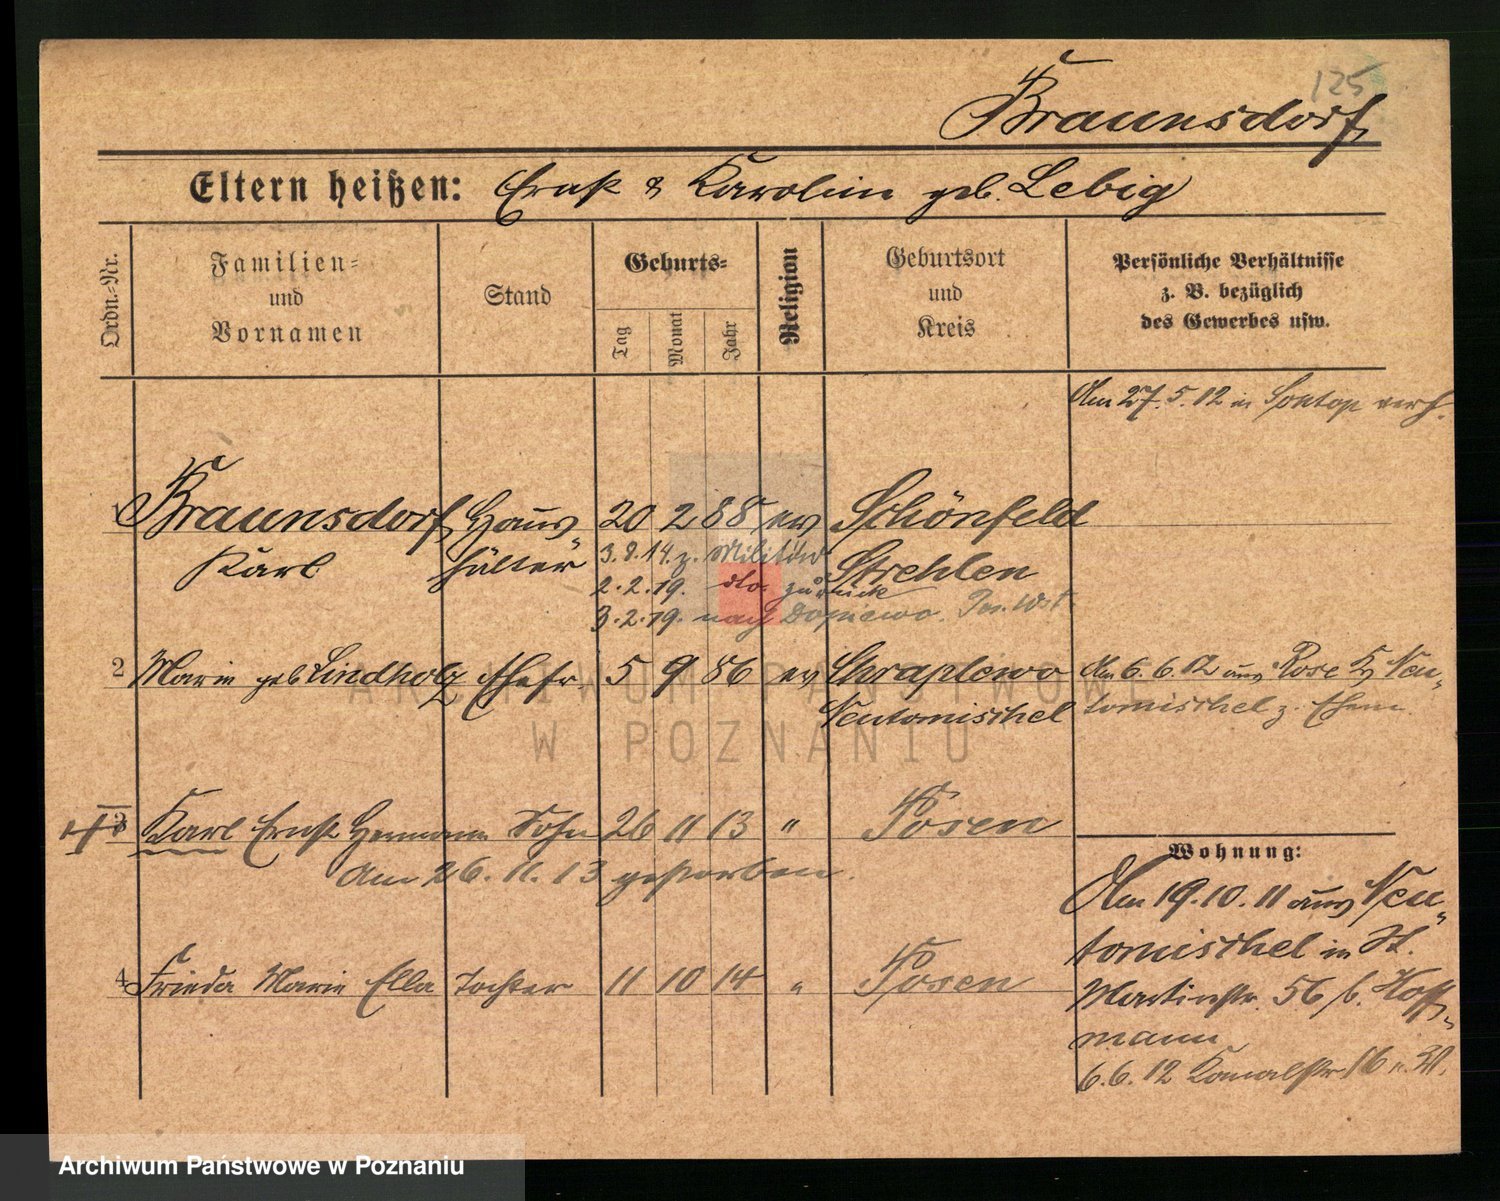 125
Braunsdorf
Eltern heißen: Ernst & Karolin geb. Lebig
Ordn.-Nr.
Familien-
und
Vornamen
Stand
Geburts-
Tag
Monat
Jahr
Religion
Geburtsort
und
Kreis
Persönliche Verhältnisse
z. B. bezüglich
des Gewerbes usw.
Am 27.5.12 in Sontop verh.
1 Braunsdorf Haus- 20 2 88 ev Schönfeld
Karl hälter Strehlen
3.8.14. z. Militär
2.2.19. dto. zurück
3.2.19. nach Dopiewo. Pos. Wst.
2 Marie geb Lindholz Ehefr. 5 9 86 ev Chraplewo Am 6.6.12 aus Rose Kr Neu-
Neutomischel tomischel z. Ehem.
3 Karl Ernst Hermann Sohn 26 11 13 " Posen
Am 26.11.13 gestorben.
4 Frieda Marie Ella Tochter 11 10 14 " Posen
Wohnung:
Am 19.10.11 aus Neu-
tomischel in St.
Martinstr. 56 b. Hoff-
mann
6.6.12 Kanalstr. 16
ARCHIWUM PAŃSTWOWE
W POZNANIU
Archiwum Państwowe w Poznaniu